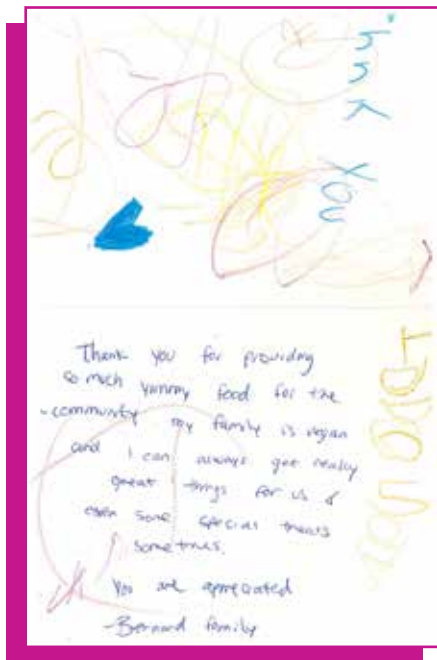 Thank you
I LOVE YOU
Thank you for providing
so much yummy food for the
community my family is vegan
and I can always get really
great things for us &
even some special treats
sometimes.
You are appreciated
-Bernard family